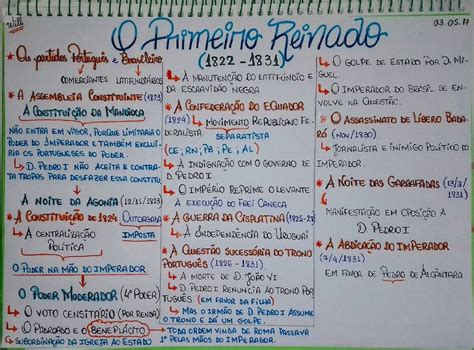 Will
03.05.17
O Primeiro Reinado
(1822 - 1831)
* Os partidos Português e Brasileiro
↳ COMERCIANTES ↳ LATIFUNDIÁRIOS
* A ASSEMBLEIA CONSTITUINTE (1823)
A CONSTITUIÇÃO DA MANDIOCA
NÃO ENTRA EM VIGOR, PORQUE LIMITARIA O
PODER DO IMPERADOR E TAMBÉM EXCLUI
RIA OS PORTUGUESES DO PODER.
↳ D. PEDRO I NÃO ACEITA E CONTRA
TA TROPAS PARA DESFAZER ESSA CONSTITU
A NOITE DA AGONIA (12/11/1823)
* A CONSTITUIÇÃO DE 1824 OUTORGADA
↳ A CENTRALIZAÇÃO IMPOSTA
POLÍTICA
O PODER NA MÃO DO IMPERADOR
O PODER MODERADOR (4º PODER)
↳ O VOTO CENSITÁRIO (POR RENDA)
↳ O PADROADO E O BENEPLÁCITO
↳ SUBORDINAÇÃO DA IGREJA AO ESTADO
↳ A MANUTENÇÃO DO LATIFÚNDIO E
DA ESCRAVIDÃO NEGRA
* A CONFEDERAÇÃO DO EQUADOR
(1824) ↳ MOVIMENTO REPUBLICANO FE
DERALISTA. SEPARATISTA
(CE, RN, PB, PE, AL)
↳ A INDIGNAÇÃO COM O GOVERNO DE
D. PEDRO I.
↳ O IMPÉRIO REPRIME O LEVANTE
↳ A EXECUÇÃO DO FREI CANECA
* A GUERRA DA CISPLATINA (1825-28)
↳ A INDEPENDÊNCIA DO URUGUAI
* A QUESTÃO SUCESSÓRIA DO TRONO
PORTUGUÊS (1826 - 1831)
↳ A MORTE DE D. JOÃO VI
↳ D. PEDRO I RENUNCIA AO TRONO POR
TUGUÊS (EM FAVOR DA FILHA)
↳ MAS O IRMÃO DE D. PEDRO I ASSUME
O TRONO E DÁ UM GOLPE.
→ TODA ORDEM VINDA DE ROMA PASSAVA
1º PELAS MÃOS DO IMPERADOR.
↳ O GOLPE DE ESTADO POR D. MI
GUEL.
↳ O IMPERADOR DO BRASIL SE EN
VOLVE NA QUESTÃO.
* O ASSASSINATO DE LÍBERO BADA
RÓ (NOV/1830)
↳ JORNALISTA E INIMIGO POLÍTICO DO
IMPERADOR.
* A NOITE DAS GARRAFADAS (12/3/
1831)
MANIFESTAÇÃO EM OPOSIÇÃO A
D. PEDRO I
* A ABDICAÇÃO DO IMPERADOR
(7/4/1831)
EM FAVOR DE PEDRO DE ALCÂNTARA